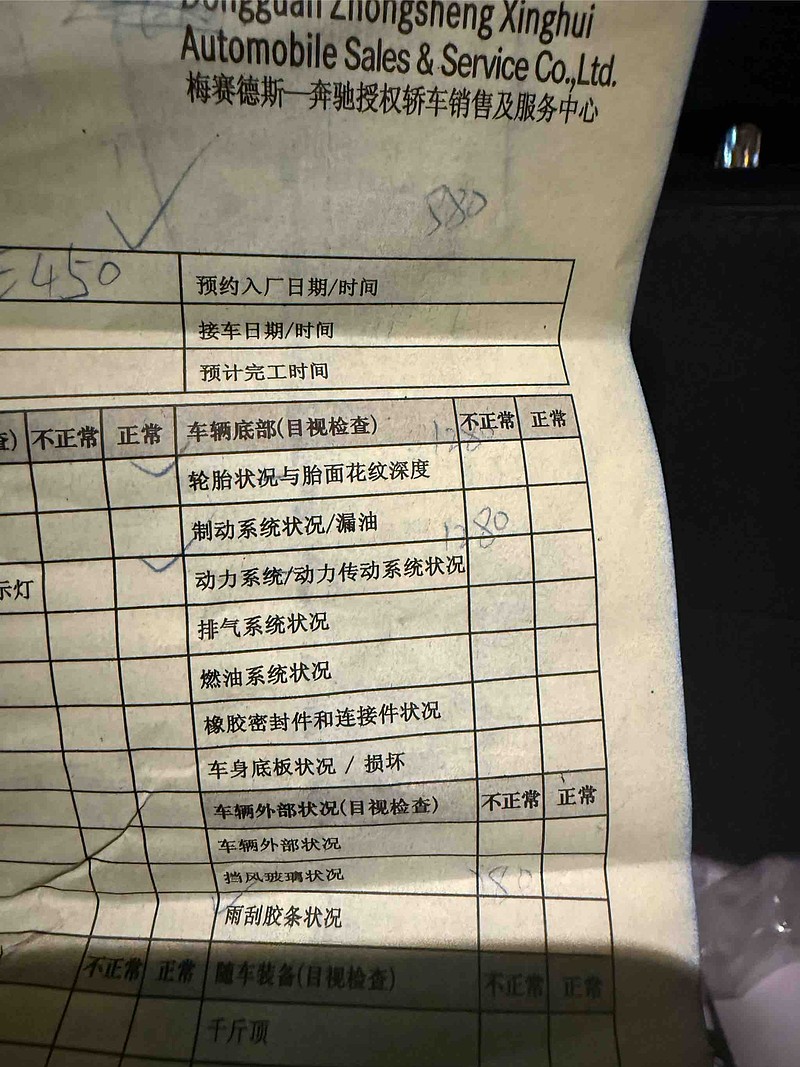 Dongguan Zhongsheng Xinghui
Automobile Sales & Service Co.,Ltd.
梅赛德斯—奔驰授权轿车销售及服务中心
580
E450 预约入厂日期/时间
接车日期/时间
预计完工时间
查) 不正常 正常 车辆底部(目视检查) 不正常 正常
轮胎状况与胎面花纹深度
制动系统状况/漏油 1280
示灯 动力系统/动力传动系统状况
排气系统状况
燃油系统状况
橡胶密封件和连接件状况
车身底板状况 / 损坏
车辆外部状况(目视检查) 不正常 正常
车辆外部状况
挡风玻璃状况
雨刮胶条状况
不正常 正常 随车装备(目视检查) 不正常 正常
千斤顶